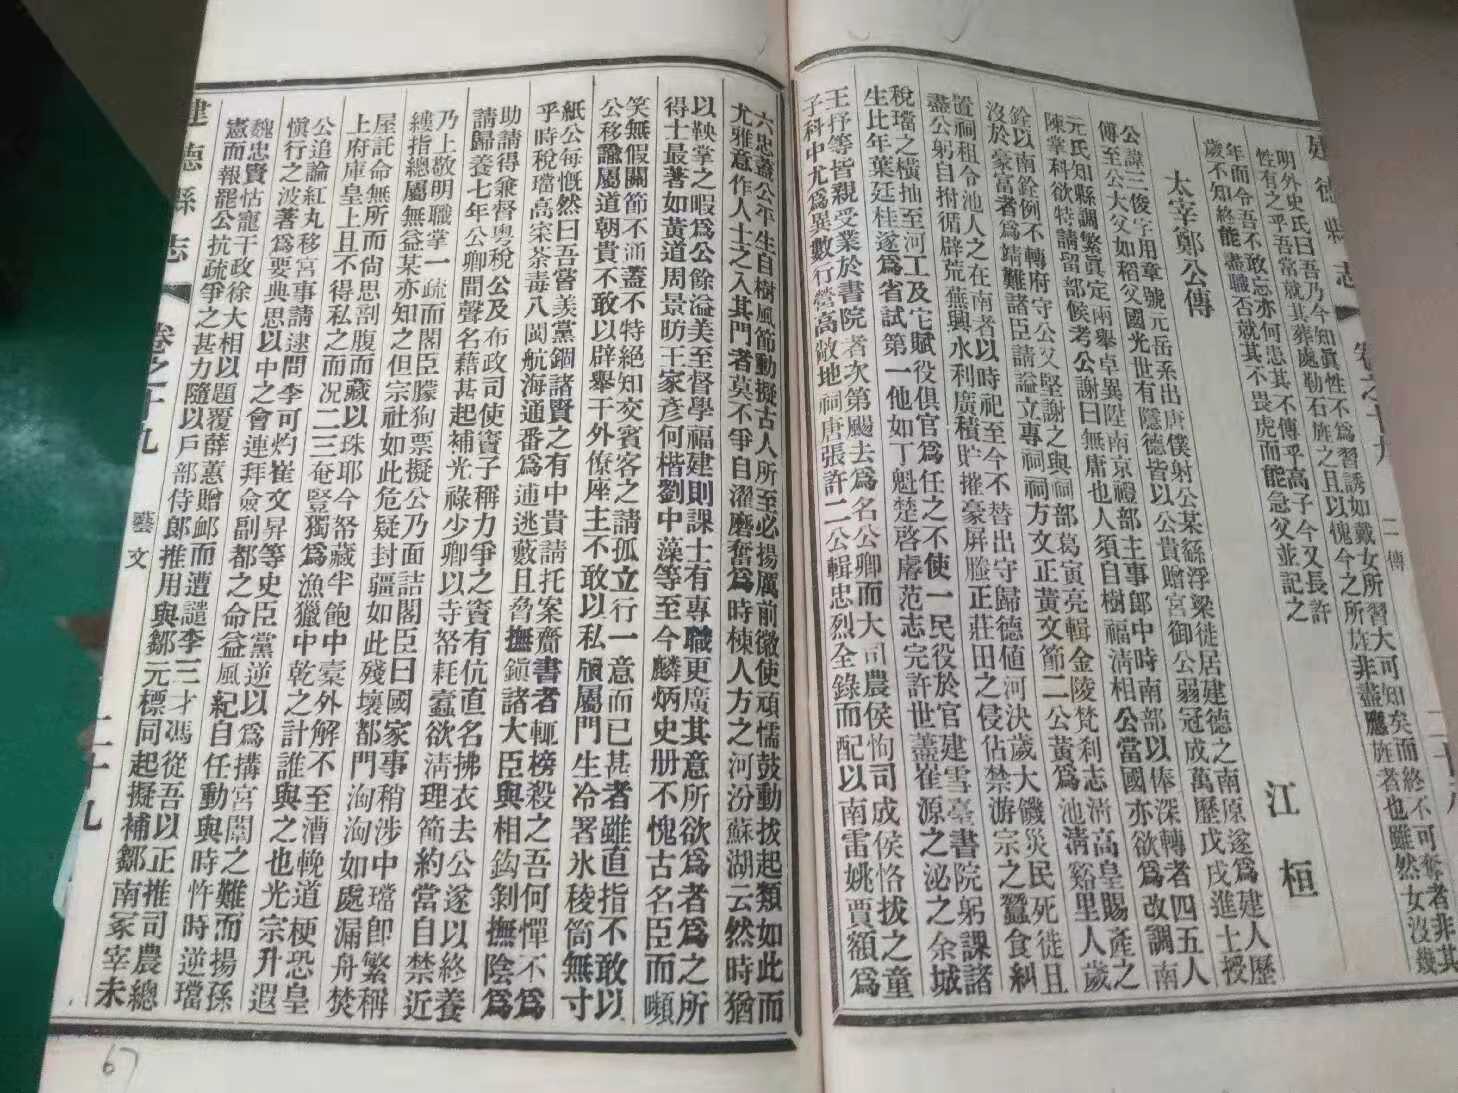 建德縣志 卷之十九 二傳 二十八
明外史氏曰吾乃今知眞性不爲習誘如戴女所習大可知矣而終不可奪者非其
性有之乎吾常就其葬處勒石旌之且以愧今之所旌非盡應旌者也雖然女沒幾
年而令吾不敢忘亦何患其不傳乎高子今又長許
歲不知終能盡職否就其不畏虎而能急父並記之
太宰鄭公傳
江桓
公諱三俊字用章號元岳系出唐僕射公某繇浮梁徙居建德之南原遂爲建人歷
傳至公大父如稻父國光世有隱德皆以公貴贈宮御公弱冠成萬歷戊戌進士授
元氏知縣調繁眞定兩舉卓異陞南京禮部主事郎中時南部以俸深轉者四五人
陳掌科欲特請留部候考公謝曰無庸也人須自樹福淸相公當國亦欲爲改調南
銓以南銓例不轉府守公又堅謝之與祠部葛寅亮輯金陵梵刹志淸高皇賜產之
沒於豪富者爲靖難諸臣請謚立專祠祠方文正黃文節二公黃爲池淸谿里人歲
置祠租令池人之在南者以時祀至今不替出守歸德値河決歲大饑災民死徙且
盡公躬自拊循辟荒蕪興水利廣積貯摧豪屏塍正莊田之侵佔禁游宗之蠶食糾
稅璫之橫拙至河工及它賦役俱官爲任之不使一民役於官建雪臺書院躬課諸
生比年葉廷桂遂爲省試第一他如丁魁楚啓睿范志完許世藎崔源之泌之余城
王抒等皆親受業於書院者次第颺去爲名公卿而大司農侯恂司成侯恪拔之童
子科中尤爲異數行營高敞地祠唐張許二公輯忠烈全錄而配以南雷姚賈額爲
六忠蓋公平生自樹風節動擬古人所至必揚厲前徽使頑懦鼓動拔起類如此而
尤雅意作人士之入其門者莫不爭自濯磨奮爲時棟人方之河汾蘇湖云然時猶
以鞅掌之暇爲公餘溢美至督學福建則課士有專職更廣其意所欲爲者爲之所
得士最著如黃道周景昉王家彥何楷劉中藻等至今麟炳史册不愧古名臣而嚬
笑無假關節不通蓋不特絕知交賓客之請孤立行一意而已甚者雖直指不敢以
公移讂屬道朝貴不敢以辟舉干外僚座主不敢以私牘屬門生冷署氷稜筒無寸
紙公每慨然曰吾嘗美黨錮諸賢之有中貴請托案齎書者輒榜殺之吾何憚不爲
乎時稅璫高寀荼毒八閩航海通番爲逋逃藪且脅撫鎭諸大臣與相鈎剝撫陰爲
助請得兼督粤稅公及布政司使竇子稱力爭之竇有伉直名拂衣去公遂以終養
請歸養七年公卿間聲名藉甚起補光祿少卿以寺帑耗蠹欲淸理節約當自禁近
乃上敬明職掌一疏而閣臣朦狗票擬公乃面詰閣臣曰國家事稍涉中璫卽繁稱
縷指總屬無益某亦知之但宗社如此危疑封疆如此殘壞都門洶洶如處漏舟焚
屋託命無所而尙思剖腹而藏以珠耶今帑藏半飽中橐外解不至漕輓道梗恐皇
上府庫皇上且不得私之而况二三奄豎獨爲漁獵中乾之計誰與之也光宗升遐
公追論紅丸移宮事請逮問李可灼崔文昇等史臣黨逆以爲搆宮闈之難而揚孫
愼行之波著爲要典思以中之會連拜僉副都之命益風紀自任動與時忤時逆璫
魏忠賢怙寵干政徐大相以題覆薛蕙贈卹而遭譴李三才馮從吾以正推司農總
憲而報罷公抗疏爭之甚力隨以戶部侍郎推用與鄒元標同起擬補鄒南冢宰未
建德縣志 卷之十九 藝文 二十九
67